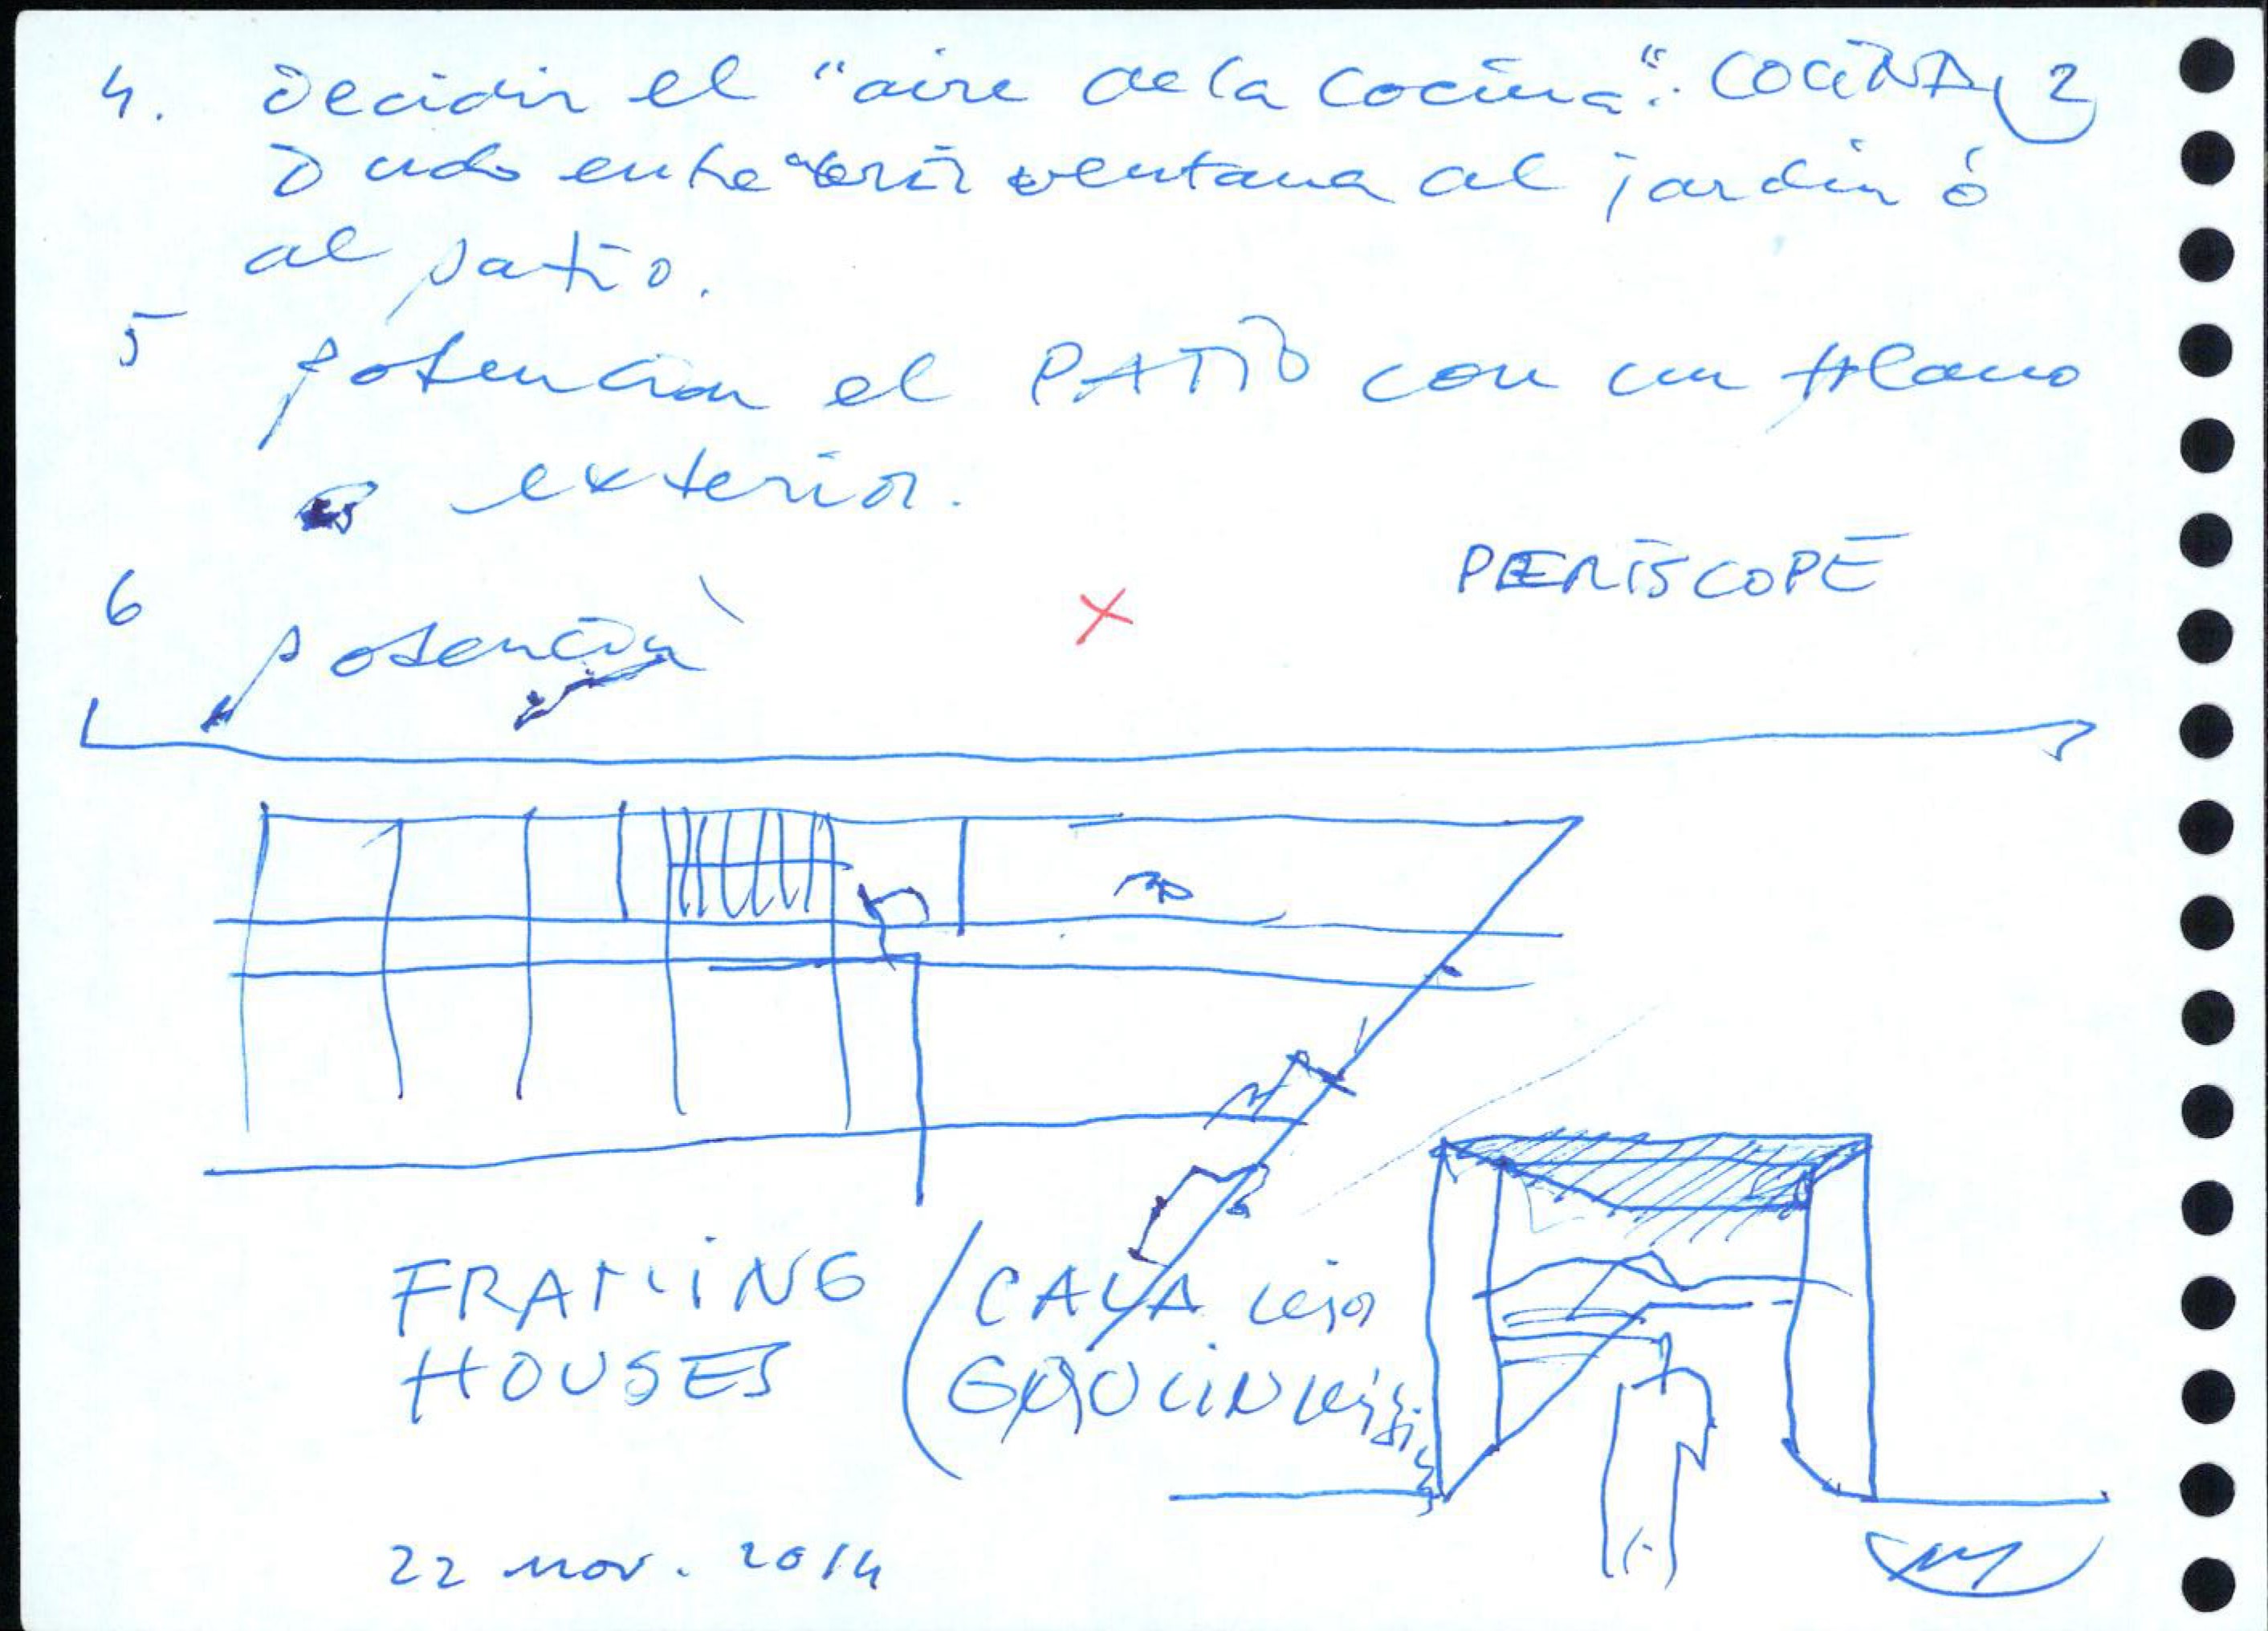 4. Decidir el "aire de la cocina". COCINA 2
Dudo entre abrir ventana al jardin ó
al patio.
5 potenciar el PATIO con un plano
exterior.
PERISCOPE
6 potenciar
FRAMING (CALA
HOUSES GAUCIN
22 nov. 2014